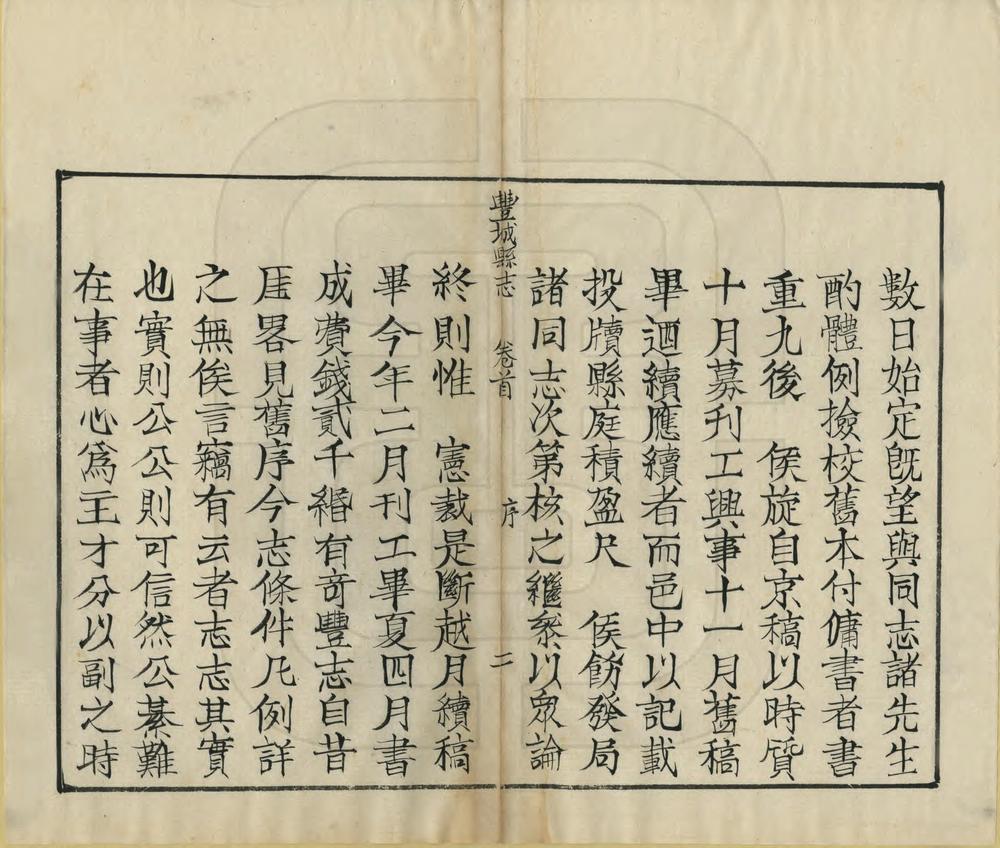 數日始定旣望與同志諸先生
酌體例撿校舊本付傭書者書
重九後　侯旋自京稿以時質
十月募刊工興事十一月舊稿
畢迺續應續者而邑中以記載
投牘縣庭積盈尺　侯飭發局
諸同志次第核之繼叅以眾論
豐城縣志　卷首　序　二
終則惟　憲裁是斷越月續稿
畢今年二月刊工畢夏四月書
成費錢貳千緡有竒豐志自昔
厓畧見舊序今志條件凡例詳
之無俟言竊有云者志志其實
也實則公公則可信然公綦難
在事者心為王才分以副之時